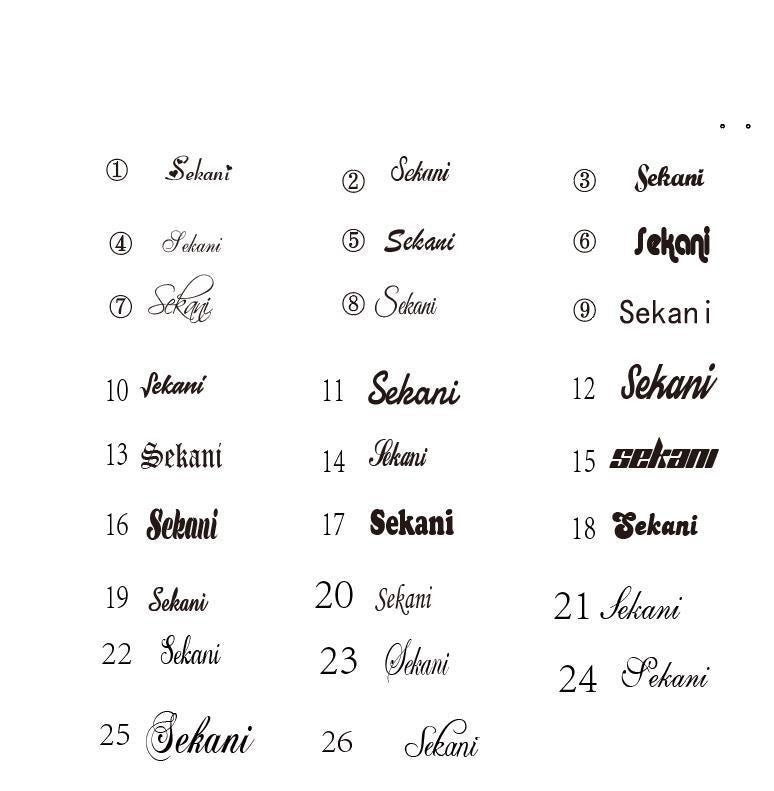 ① Sekani ② Sekani ③ Sekani
④ Sekani ⑤ Sekani ⑥ Sekani
⑦ Sekani ⑧ Sekani ⑨ Sekani
10 Sekani 11 Sekani 12 Sekani
13 Sekani 14 Sekani 15 sekani
16 Sekani 17 Sekani 18 Sekani
19 Sekani 20 Sekani 21 Sekani
22 Sekani 23 Sekani 24 Sekani
25 Sekani 26 Sekani